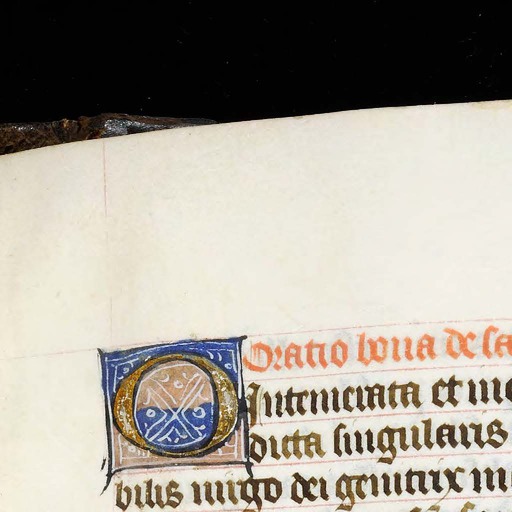 Oratio bona de sa
O Intemerata et in
dicta singularis
bilis uirgo dei genitrix m